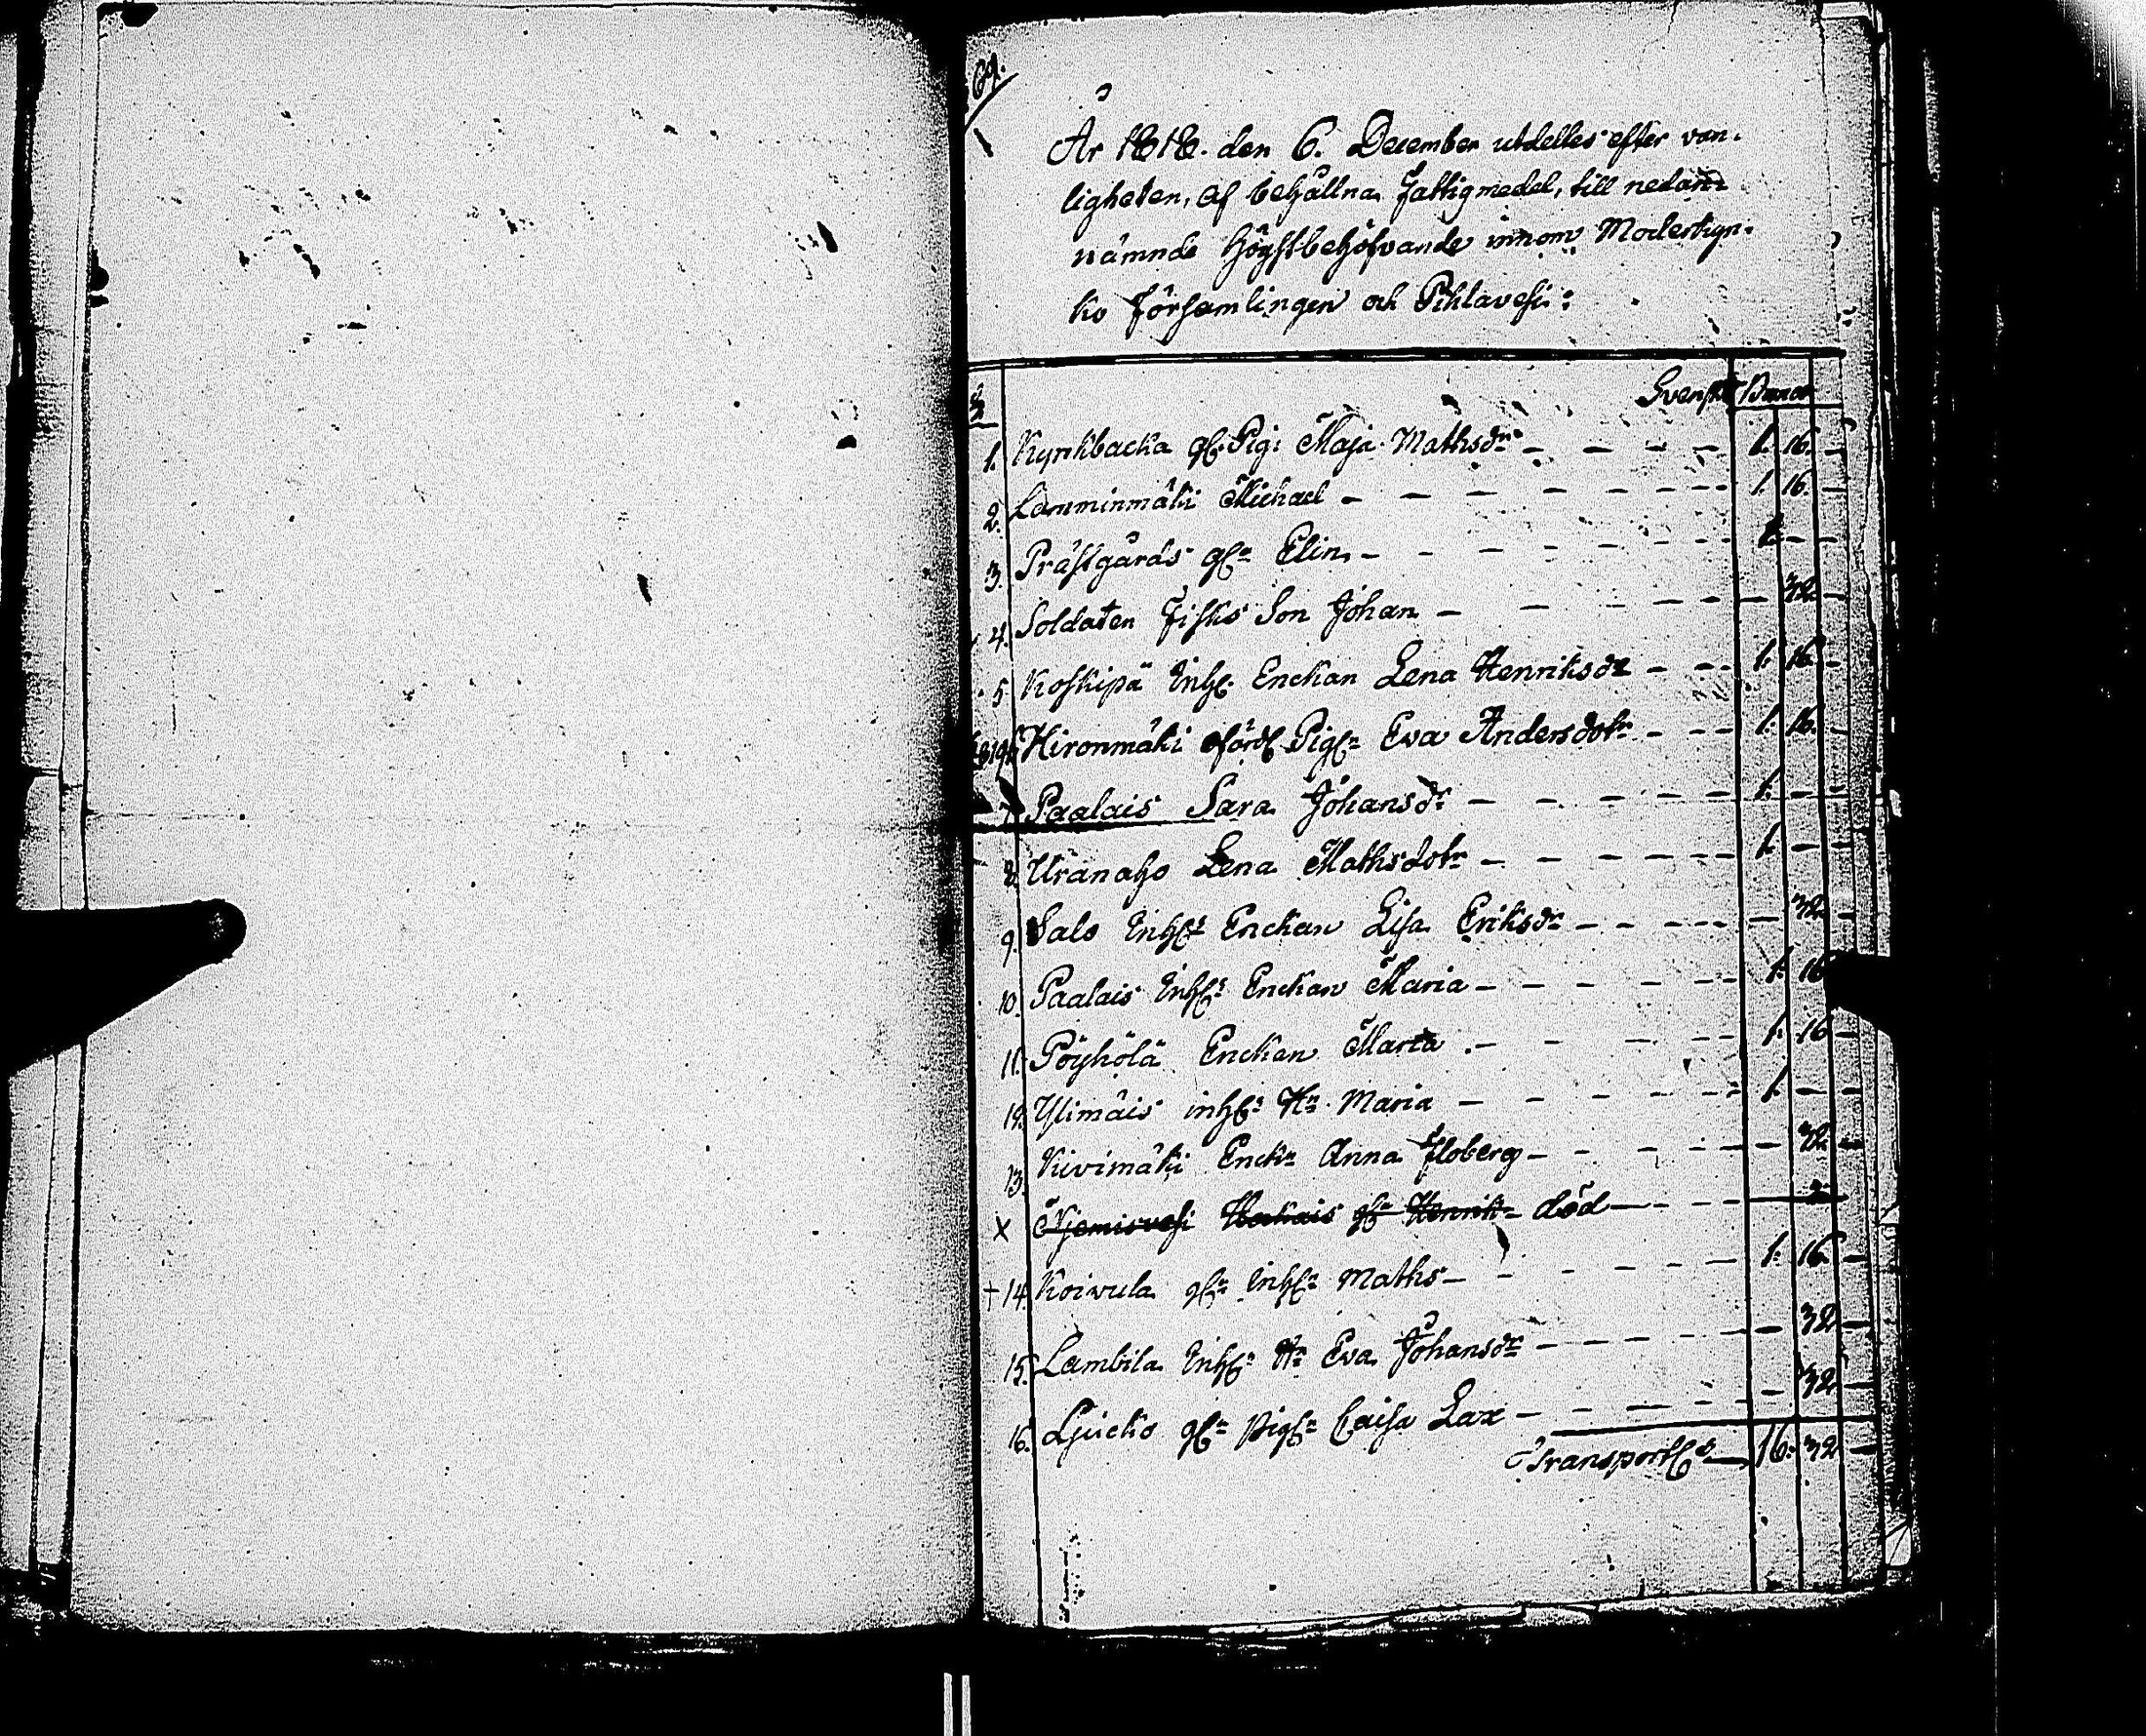 69.
År 1818. den 6. December utdelles efter van-
ligheten, af behållna Fattigmedel, till nedan-
nämnde Högstbehöfvande innom Moderkyr-
ko Församlingen och Pihlavesi:
Svenskt Banco
1. Kyrkbacka gl. Pig: Maja Mathsdr — 1. 16. —
2. Lamminmäki Michael — 1. 16. —
3. Prästgårds gln Elin — — —
4. Soldaten Fisks Son Johan — — 32. —
5. Koskipä Inh. Enckan Lena Henriksdr — 1. 16. —
Hironmäki Pign Eva Andersdotr — 1. 16. —
7. Paalais Sara Johansdr — 1. — —
8. Uranaho Lena Mathsdotr — 1. — —
9. Salo Inhs Enckan Lisa Eriksdr — — 32. —
10. Paalais Inhs Enckan Maria — 1. 16
11. Pöyhölä Enckan Marta — 1. 16 —
12. Ylimäis inhs Hu Maria — 1. — —
13. Kivimäki Enckn Anna Floberg — — 32 —
x död —
+ 14. Koivula gln Inhn Maths — 1. 16. —
15. Lambila Inhn Eva Johansdr — — 32 —
16. Ljucko gln pign Caisa Lax — — 32 —
Transport 16. 32 —